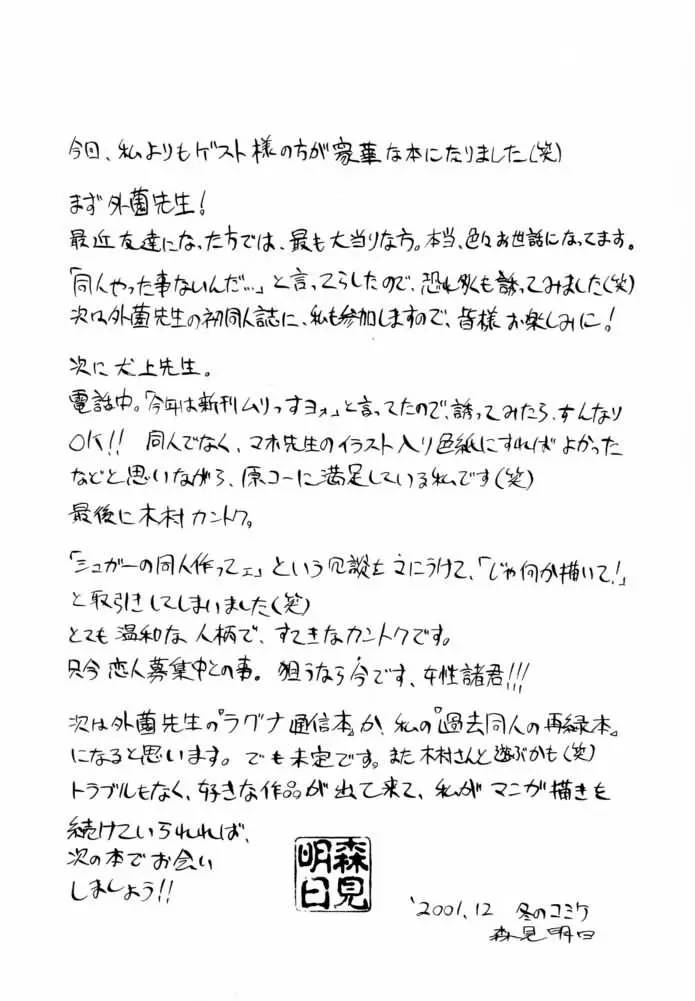 今回、私よりもゲスト様の方が豪華な本になりました(笑)
まず外薗先生!
最近友達になった方では、最も大当りな方。本当、色々お世話になってます。
「同人やった事ないんだ…」と言ってらしたので、恐れ多くも誘ってみました(笑)
次は外薗先生の初同人誌に、私も参加しますので、皆様お楽しみに!
次に犬上先生。
電話中。「今年は新刊ムリっすヨォ」と言ってたので、誘ってみたら、すんなり
OK!! 同人でなく、マホ先生のイラスト入り色紙にすればよかった
などと思いながら、原コーに満足している私です(笑)
最後に木村カントク。
「シュガーの同人作ってェ」という冗談をまにうけて、「じゃ何か描いて!」
と取引きしてしまいました(笑)
とても温和な人柄で、すてきなカントクです。
只今恋人募集中との事。狙うなら今です、女性諸君!!!
次は外薗先生の『ラグナ通信本』か、私の『過去同人の再録本』
になると思います。でも未定です。また木村さんと遊ぶかも(笑)
トラブルもなく、好きな作品が出て来て、私がマンガ描きを
続けていられれば、
次の本でお会い
しましょう!!
森見
明日
'2001.12 冬のコミケ
森見明日